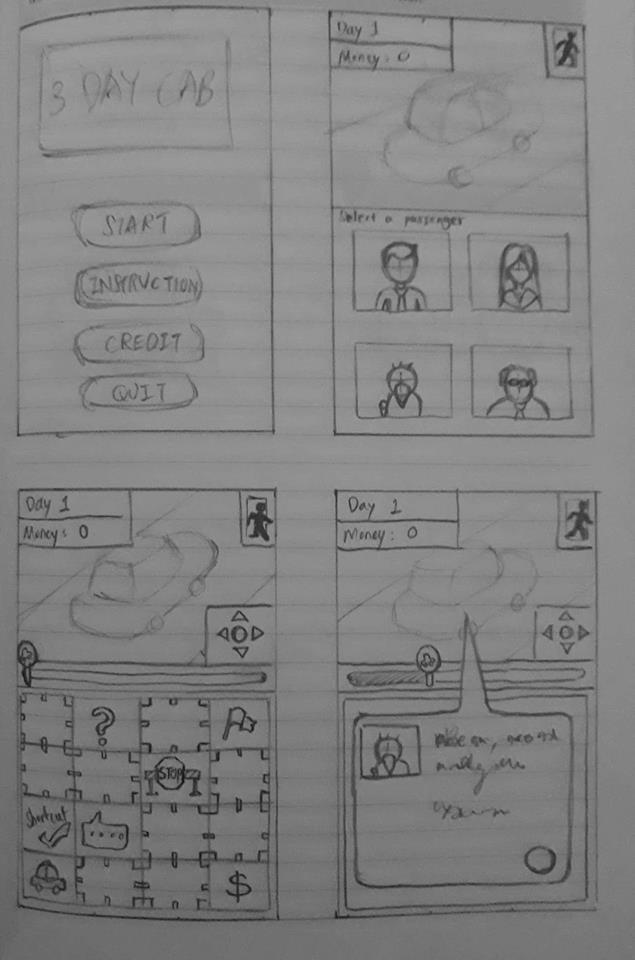 3 DAY CAB
START
INSTRUCTION
CREDIT
QUIT
Day 1
Money: 0
Select a passenger
Day 1
Money: 0
?
STOP
Shortcut
....
$
Day 1
Money: 0